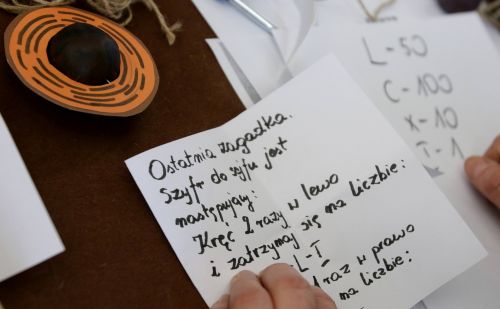 Ostatnia zagadka.
Szyfr do sejfu jest
następujący:
Kręć 2 razy w lewo
i zatrzymaj się na liczbie:
L-I
1 raz w prawo
na liczbie:
L-50
C-100
X-10
I-1